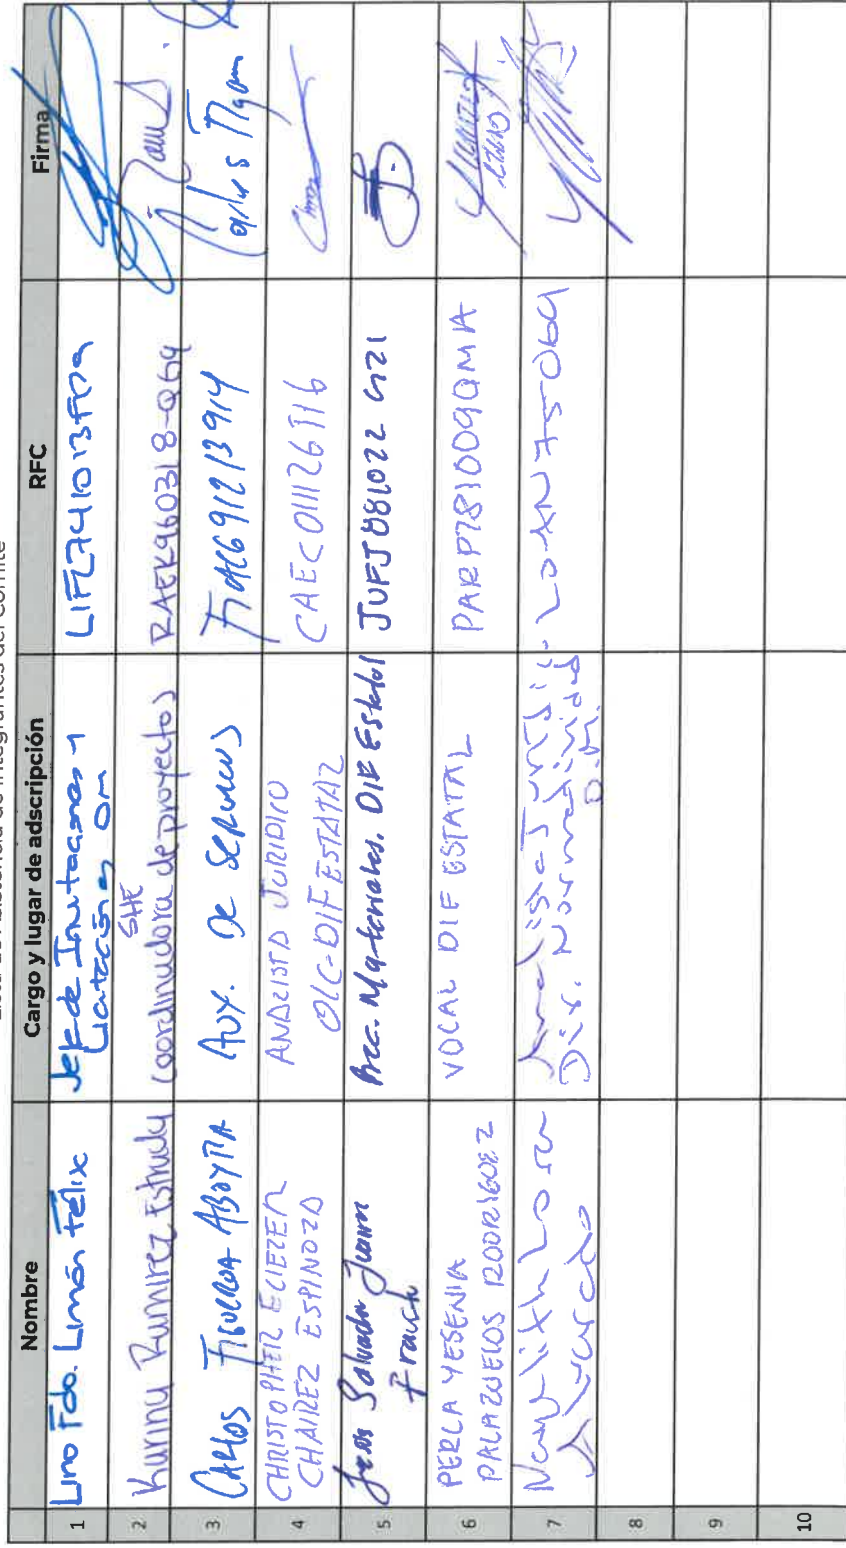 Lista de Asistencia de Integrantes del Comité
Nombre Cargo y lugar de adscripción RFC Firma
1 Lino Fdo. Limón Félix Jefe de Invitaciones y
Licitaciones OM LIFL741013
2 Karina Ramirez Estrada SHE
coordinadora de proyectos RAEK960318-Q69
3 CARLOS FIGUEROA ABOYTIA AUX. DE SERVICIOS
4 CHRISTOPHER ELIEZER
CHAIREZ ESPINOZA ANALISTA JURIDICO
OIC-DIF ESTATAL CAEC011126
5 Jesus Salvador Juarez
Rec. Materiales. DIF Estatal JUFJ881022
6 PERLA YESENIA
PALAZUELOS RODRIGUEZ VOCAL DIF ESTATAL PARP781009QMA
7 Nayelith
Analista Jurídic
Dir. Normatividad
O.M.
8
9
10